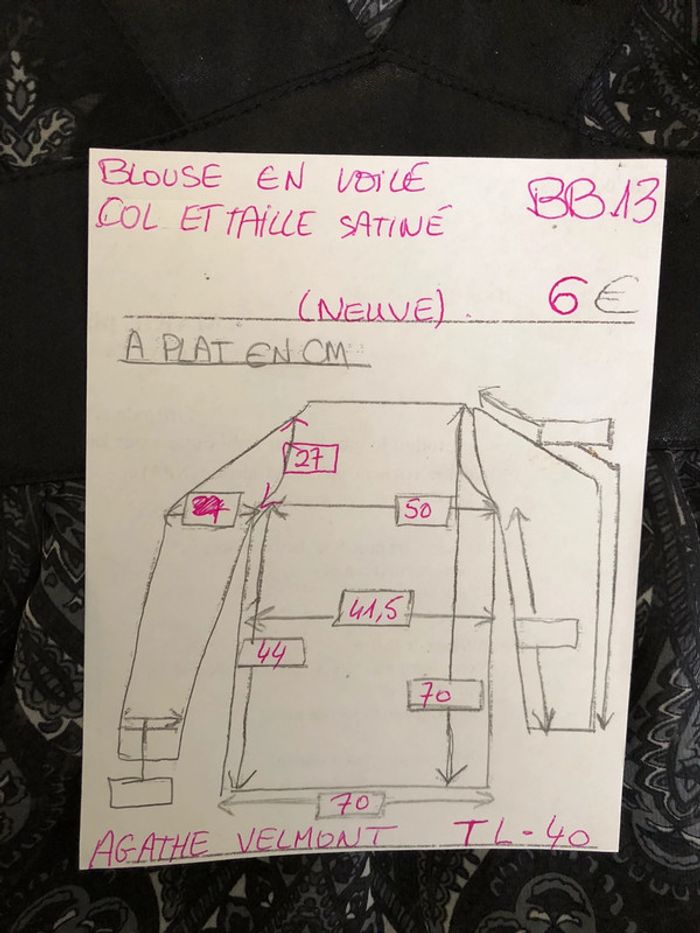 BLOUSE EN VOILE BB.13
COL ET TAILLE SATINÉ
(NEUVE). 6€
A PLAT EN CM
27
50
41,5
44
70
70
AGATHE VELMONT TL-40